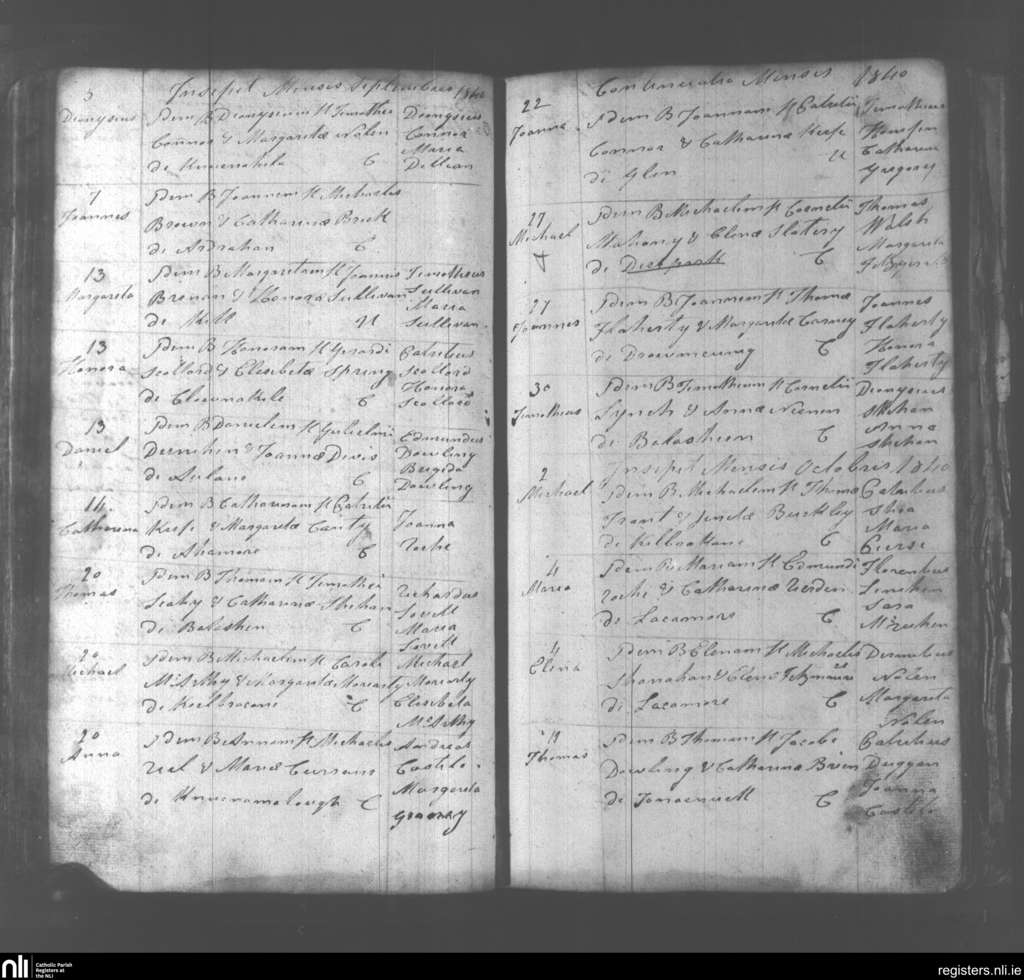 Insepit Mensis Septembris 1840
5
Dionysius
Idem B Dionysium F Timothei
Connor & Margaritæ Nolen
de Knuenakila C
Dionysius
Connor
Maria
Dellian
7
Joannes
Idem B Joannem F Michaelis
Brown & Catharinæ Brick
de Ardrahan C
13
Margareta
Idem B Margaretam F Joannis
Brenan & Honoræ Sullivan
de Kill U
Timotheus
Sullivan
Maria
Sullivan
13
Honora
Idem B Honoram F Gerardi
Scollord & Elesebetæ Spring
de Cloownakile C
Patricius
Scollord
Honora
Scollord
13
Daniel
Idem B Danielem F Gulielmi
Dernihen & Joannæ Devis
de Aulane C
Edmundus
Dowling
Brigida
Dowling
14
Catharina
Idem B Catharinam F Patricii
Keefe & Margaretæ Canty
de Ahamore C
Joanna
Roche
20
Thomas
Idem B Thomam F Timothei
Leahy & Catharinæ Shehan
de Balashen C
Richardus
Lovett
Maria
Lovett
20
Michael
Idem B Michaelem F Caroli
McArthy & Margaretæ Moriarty
de Keelbracane C
Michael
Moriarty
Elesebeta
McArthy
20
Anna
Idem B Annam F Michaelis
Real & Mariæ Currans
de Knuenamalough C
Andreas
Costilo
Margareta
Granay
Continuatio Mensis 1840
22
Joanna
Idem B Joannam F Patricii
Connor & Catharinæ Keefe
de Glen U
Timotheus
Catharina
Gregory
27
Michael
Idem B Michaelem F Cornelii
Mahony & Elenæ Slatery
de Deerpark C
Thomas
Walsh
Margareta
27
Joannes
Idem B Joannem F Thomæ
Flaherty & Margaritæ Carney
de Drowmcunig C
Joannes
Flaherty
Honora
Flaherty
30
Timotheus
Idem B Timotheum F Cornelii
Lynch & Annæ Neenen
de Balasheen C
Dionysius
Shehan
Anna
Shehan
Insepit Mensis Octobris 1840
2
Michael
Idem B Michaelem F Thomæ
Trant & Juneta Buckley
de Kilbrakane C
Patricius
Shea
Maria
Curse
4
Maria
Idem B Mariam F Edmundi
Roche & Catharinæ Rierden
de Lacamore C
Florentius
Lenehen
Sara
4
Elena
Idem B Elenam F Michaelis
Shanahan & Elenæ Fitzmauris
de Lacamore C
Dermitius
Nolen
Margareta
Nolen
11
Thomas
Idem B Thomam F Jacobi
Dowling & Catharinæ Brien
de C
Patricius
Duggan
Joanna
Costilo
nli
Catholic Parish
Registers at
the NLI
registers.nli.ie